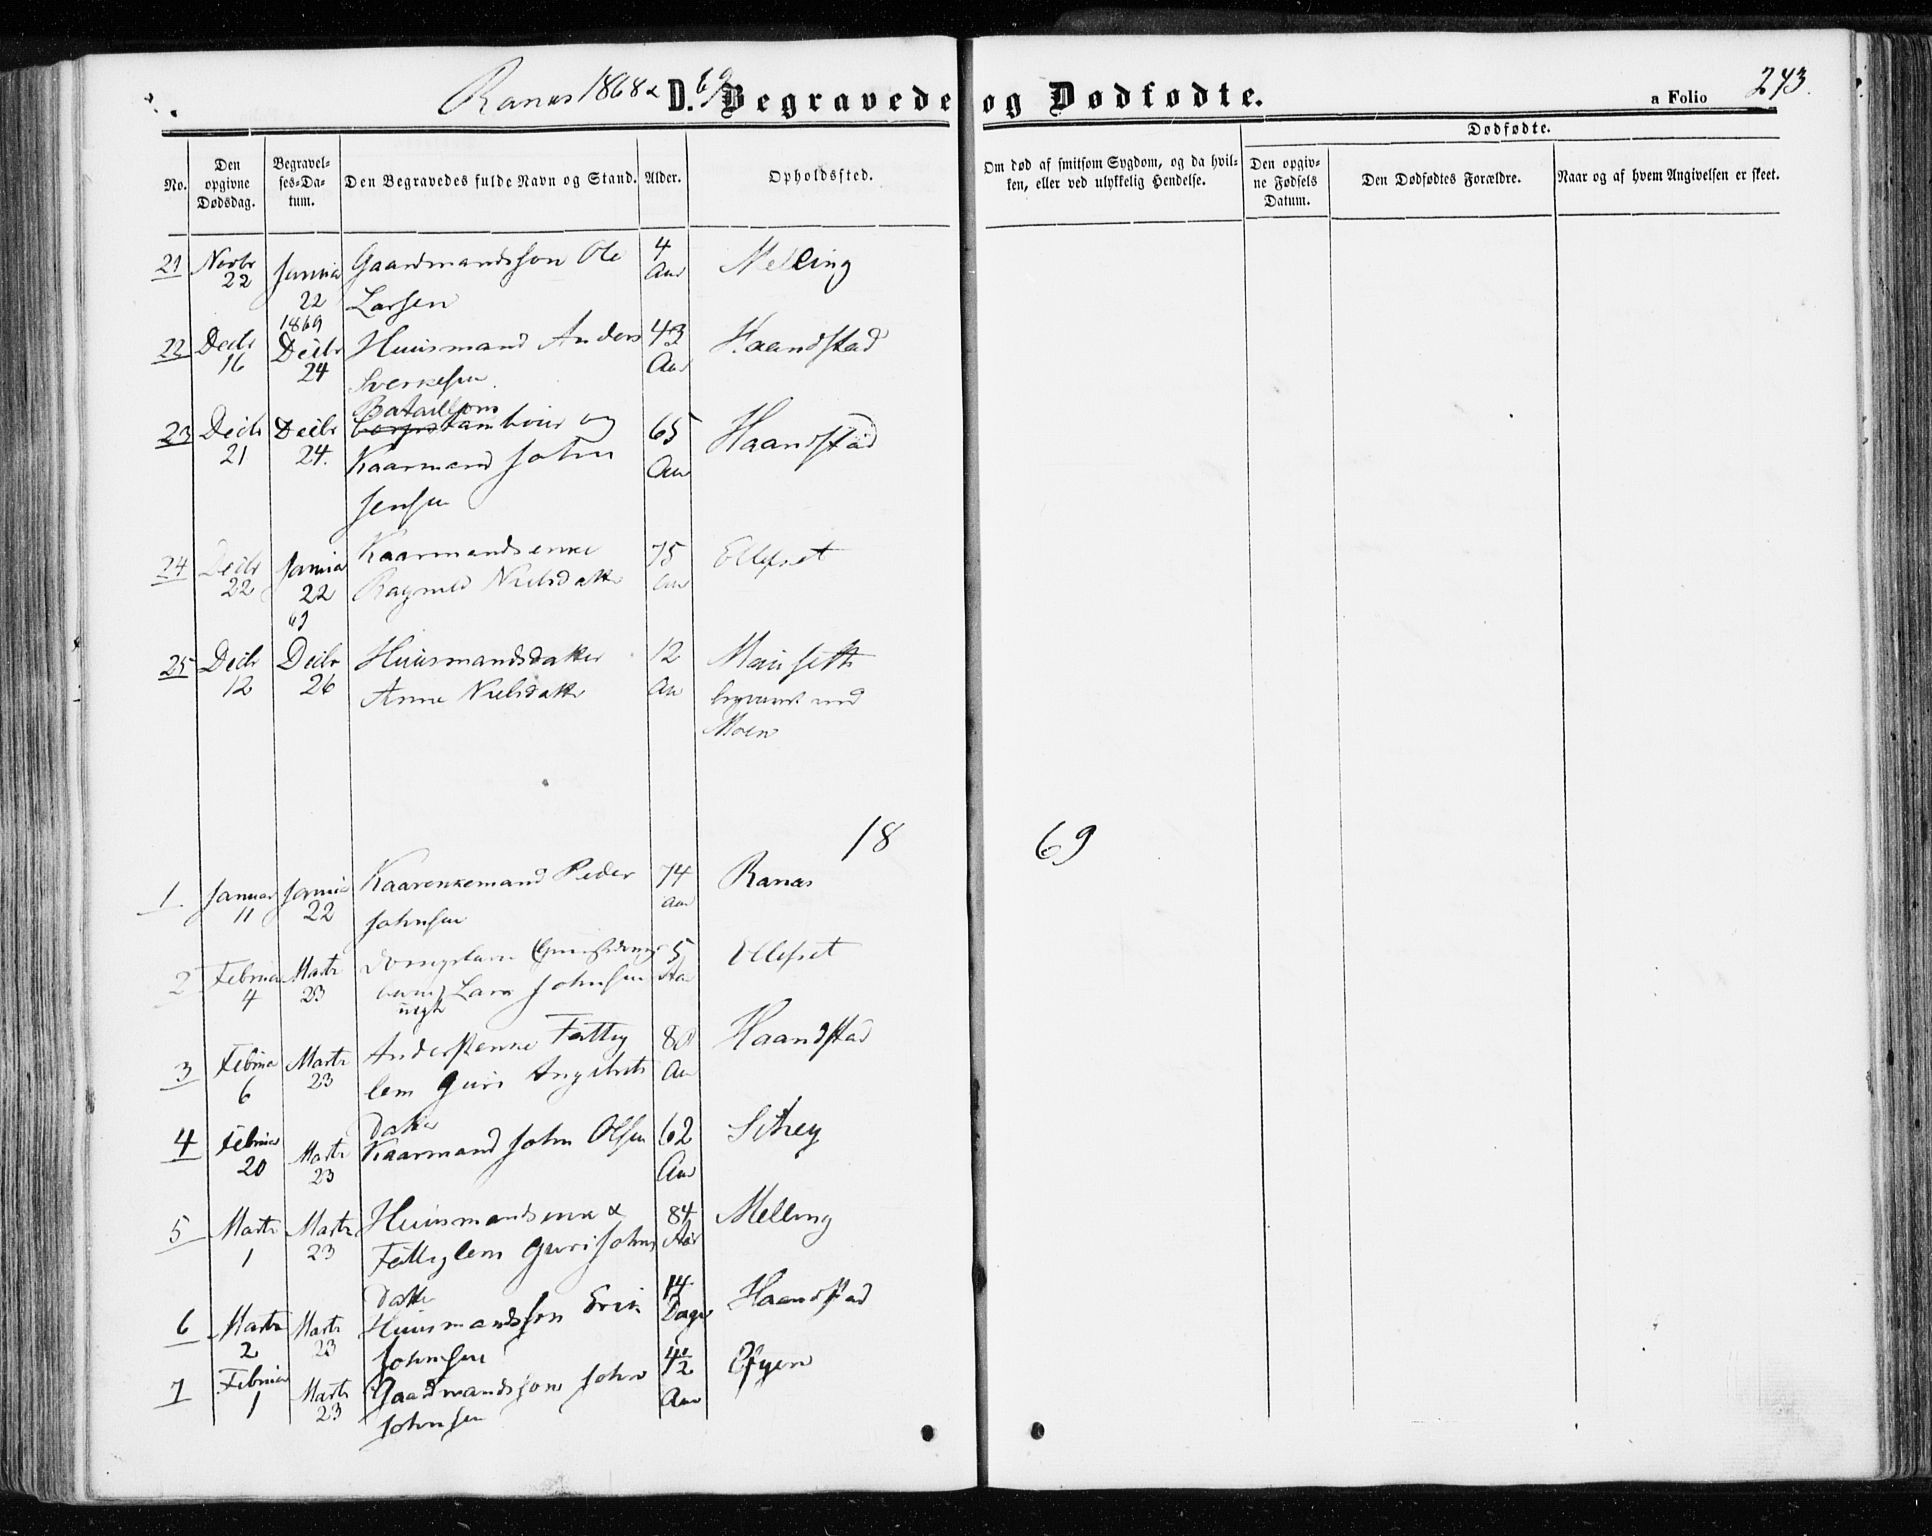 Ranes 1868 & 69
D. Begravede og Dødfødte.
a Folio 243.
No.
Den opgivne Dødsdag.
Begravelses-Datum.
Den Begravedes fulde Navn og Stand.
Alder.
Opholdssted.
Om død af smitsom Sygdom, og da hvilken, eller ved ulykkelig Hendelse.
Dødfødte.
Den opgivne Fødsels Datum.
Den Dødfødtes Forældre.
Naar og af hvem Angivelsen er skeet.
21 Novbr 22 Januar 22 1869 Gaardmandssøn Ole Larsen 4 Aar Melling
22 Decbr 16 Decbr 24 Huusmand Anders 43 Aar Haandstad
23 Decbr 21 Decbr 24. Bataillons tambour og Kaarmand John Jensen 65 Aar Haandstad
24 Decbr 22 Januar 22 69 Kaarmandsenke Nielsdatter 75 Aar Ellefset
25 Decbr 12 Decbr 26 Huusmandsdatter Anne Nielsdatter 12 Aar begravet ved Moen
18 69
1. Januar 11 Januar 22 Kaarenkemand Peder Johnsen 74 Aar Ranes
2 Februar 4 Marts 23 Lars Johnsen 5 Ellefset
3 Februar 6 Marts 23 Fattiglem Guri datter 80 Aar Haandstad
4 Februar 20 Marts 23 Kaarmand John Olsen 62 Aar
5 Marts 1 Marts 23 Huusmandsenke & Fattiglem Guri Johnsdatter 84 Aar Melling
6 Marts 2 Marts 23 Huusmandssøn Erik Johnsen 14 Dage Haandstad
7 Februar 1 Marts 23 Gaardmandssøn John Johnsen 4 1/2 Aar Øyen